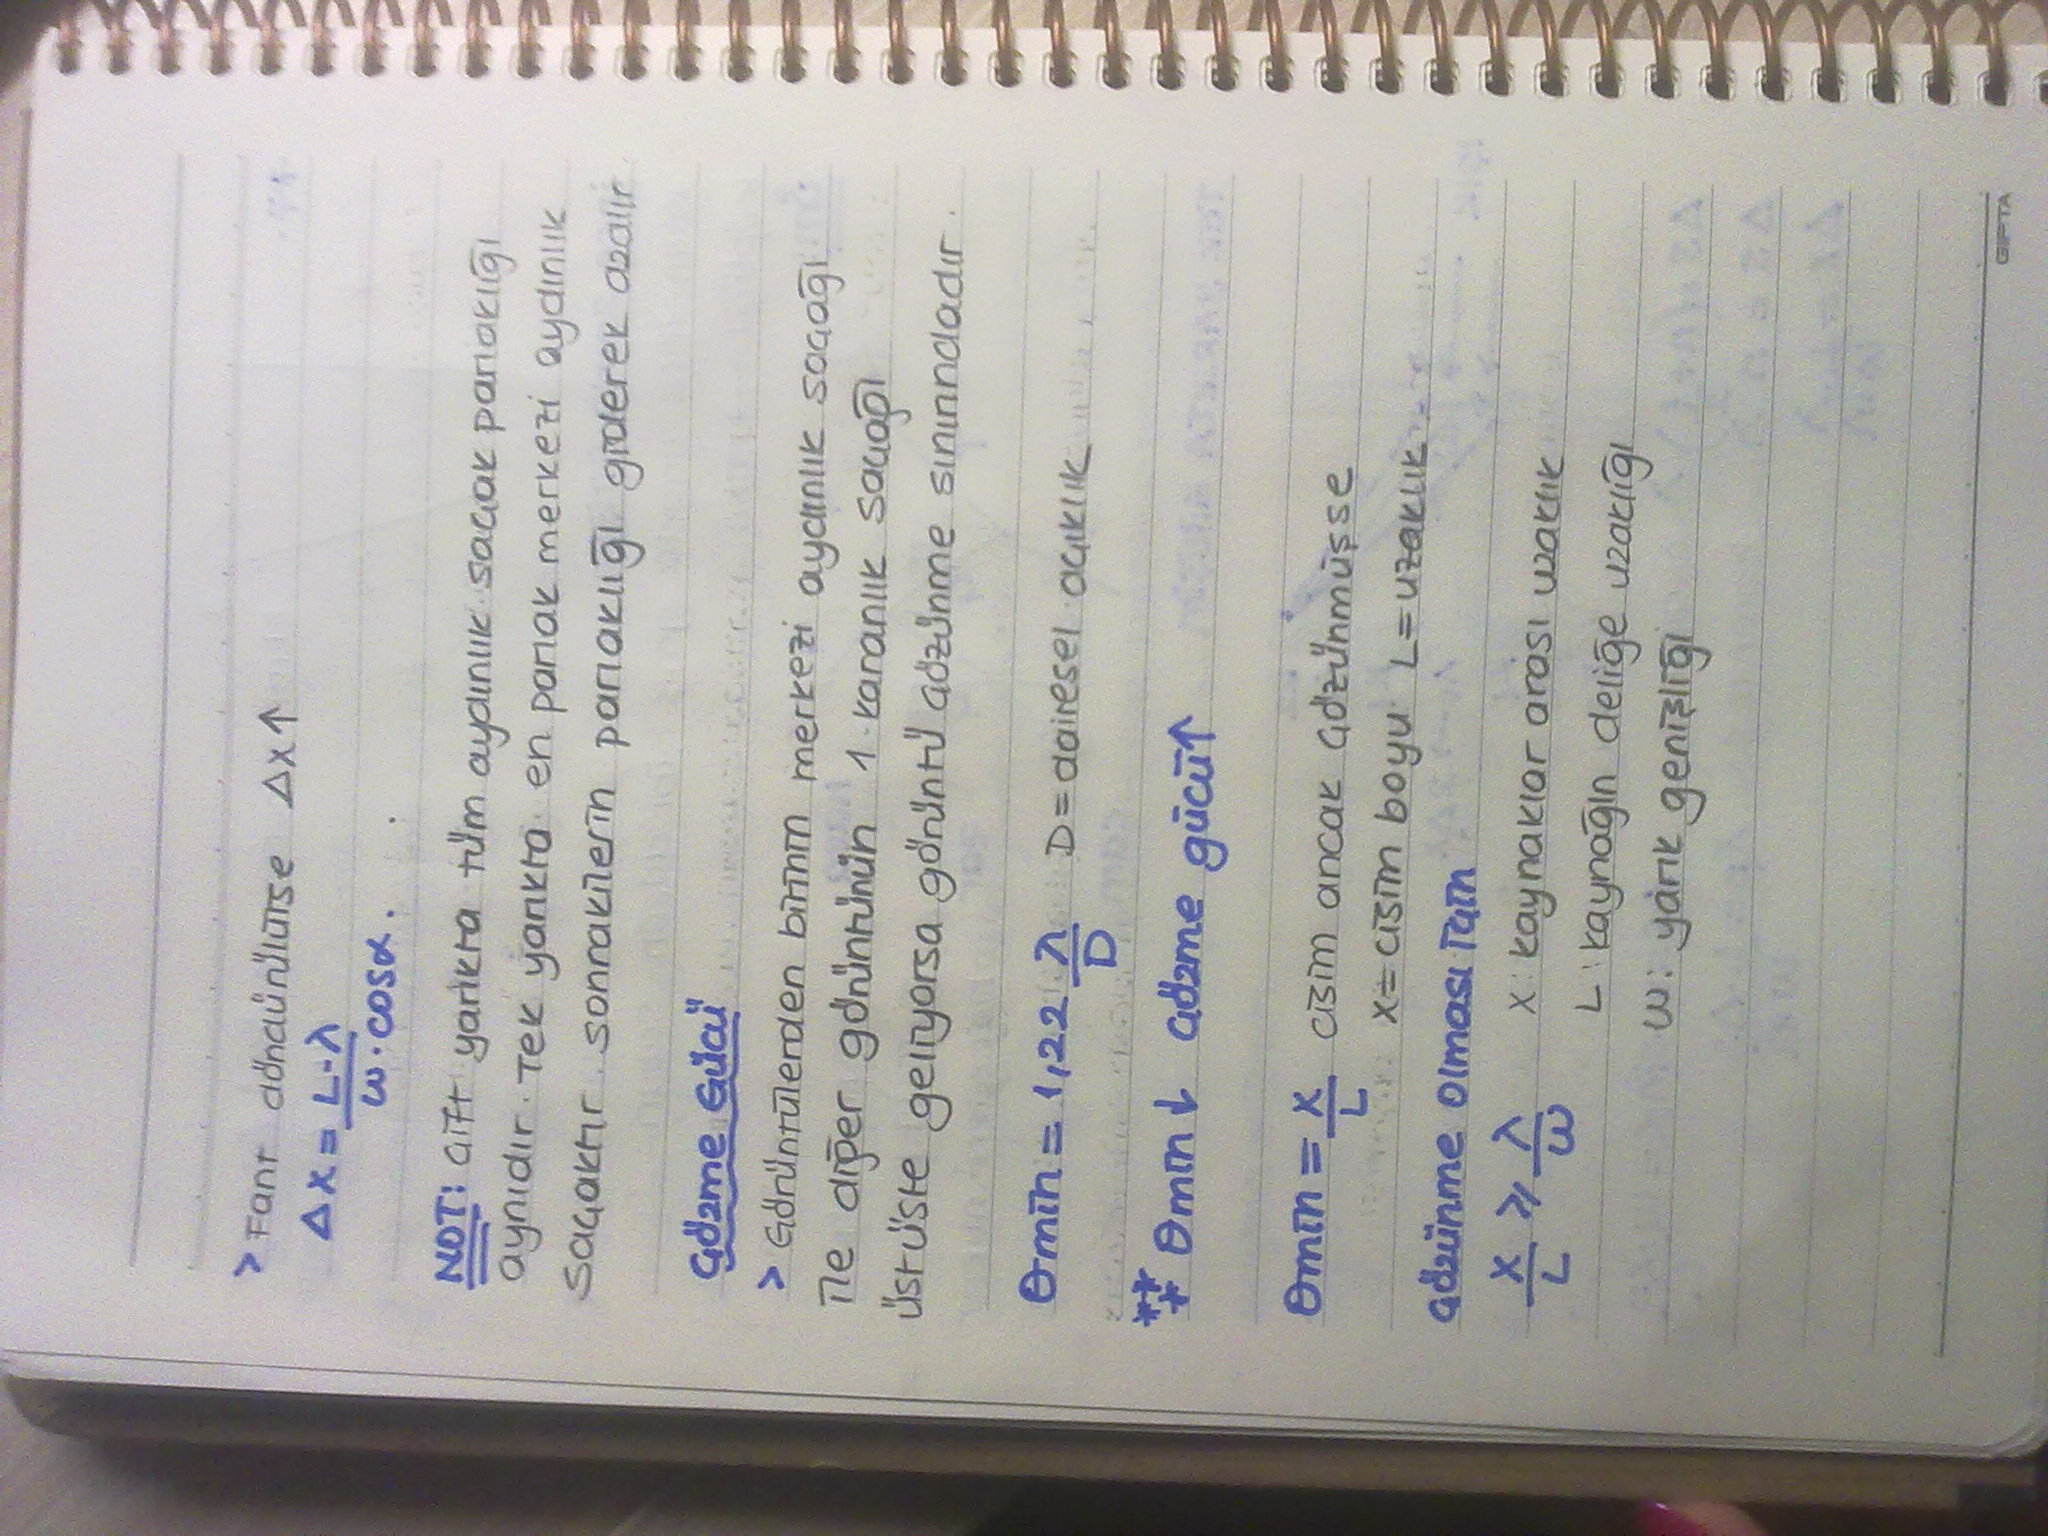 > Fant döndürülürse Δx↑
Δx = L·λ / w·cosα.
NOT: Çift yarıkta tüm aydınlık saçak parlaklığı
aynıdır. Tek yarıkta en parlak merkezi aydınlık
saçaktır sonrakilerin parlaklığı giderek azalır.
Çözme Gücü
> Görüntülerden birinin merkezi aydınlık saçağı
ile diğer görüntünün 1. karanlık saçağı
üstüste geliyorsa görüntü çözünme sınırındadır.
θmin = 1,22 λ/D D = dairesel açıklık
*** θmin↓ çözme gücü↑
θmin = x/L cisim ancak çözünmüşse
x = cisim boyu L = uzaklık
Çözünme olması için
x/L ≥ λ/w x: kaynaklar arası uzaklık
L: kaynağın deliğe uzaklığı
w: yarık genişliği
GIFTA